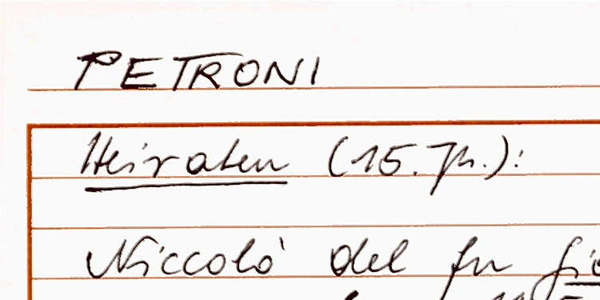 PETRONI
Heiraten (15. Jh.):
Niccolò del fu